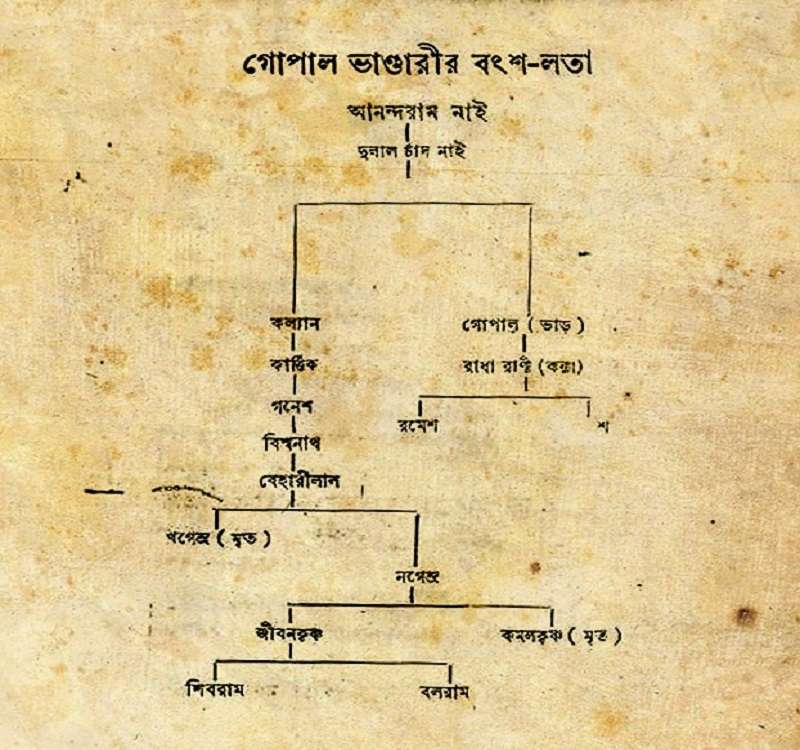 গোপাল ভাণ্ডারীর বংশ-লতা
আনন্দরাম নাই
দুলাল চাদ নাই
কল্যান গোপাল ( ভাড় )
কার্ত্তিক রাধা রাণী (কন্যা)
গনেশ
রমেশ শ
বিশ্বনাথ
বেহারীলাল
খগেন্দ্র ( মৃত )
নগেন্দ্র
জীবনকৃষ্ণ কমলকৃষ্ণ ( মৃত )
শিবরাম বলরাম